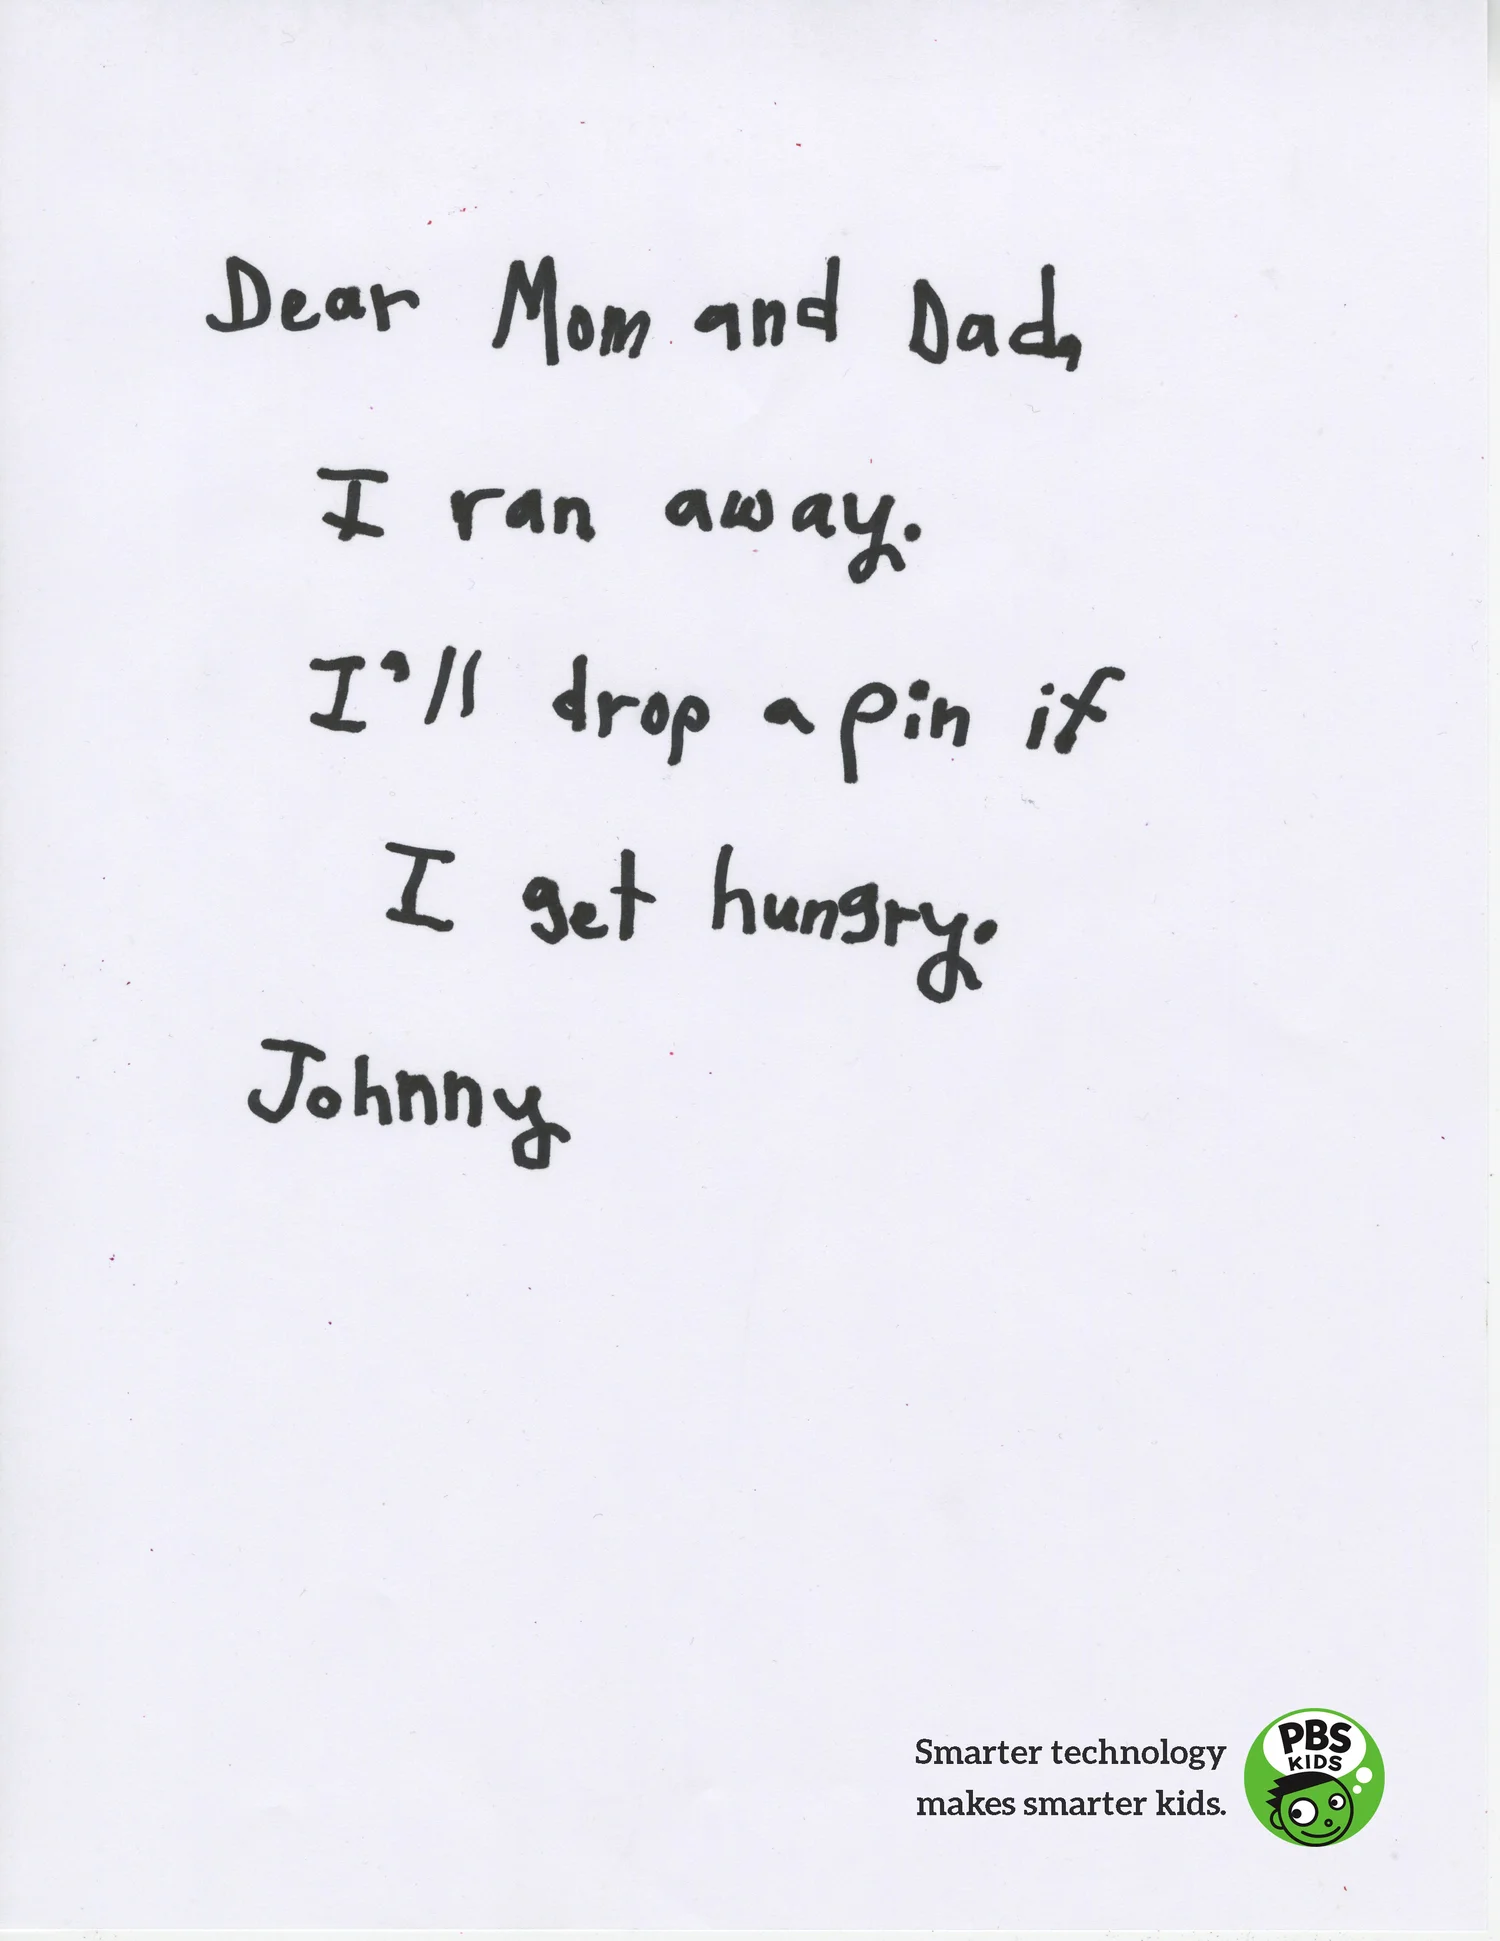 Dear Mom and Dad,
I ran away.
I'll drop a pin if
I get hungry.
Johnny
Smarter technology
makes smarter kids.
PBS
KIDS